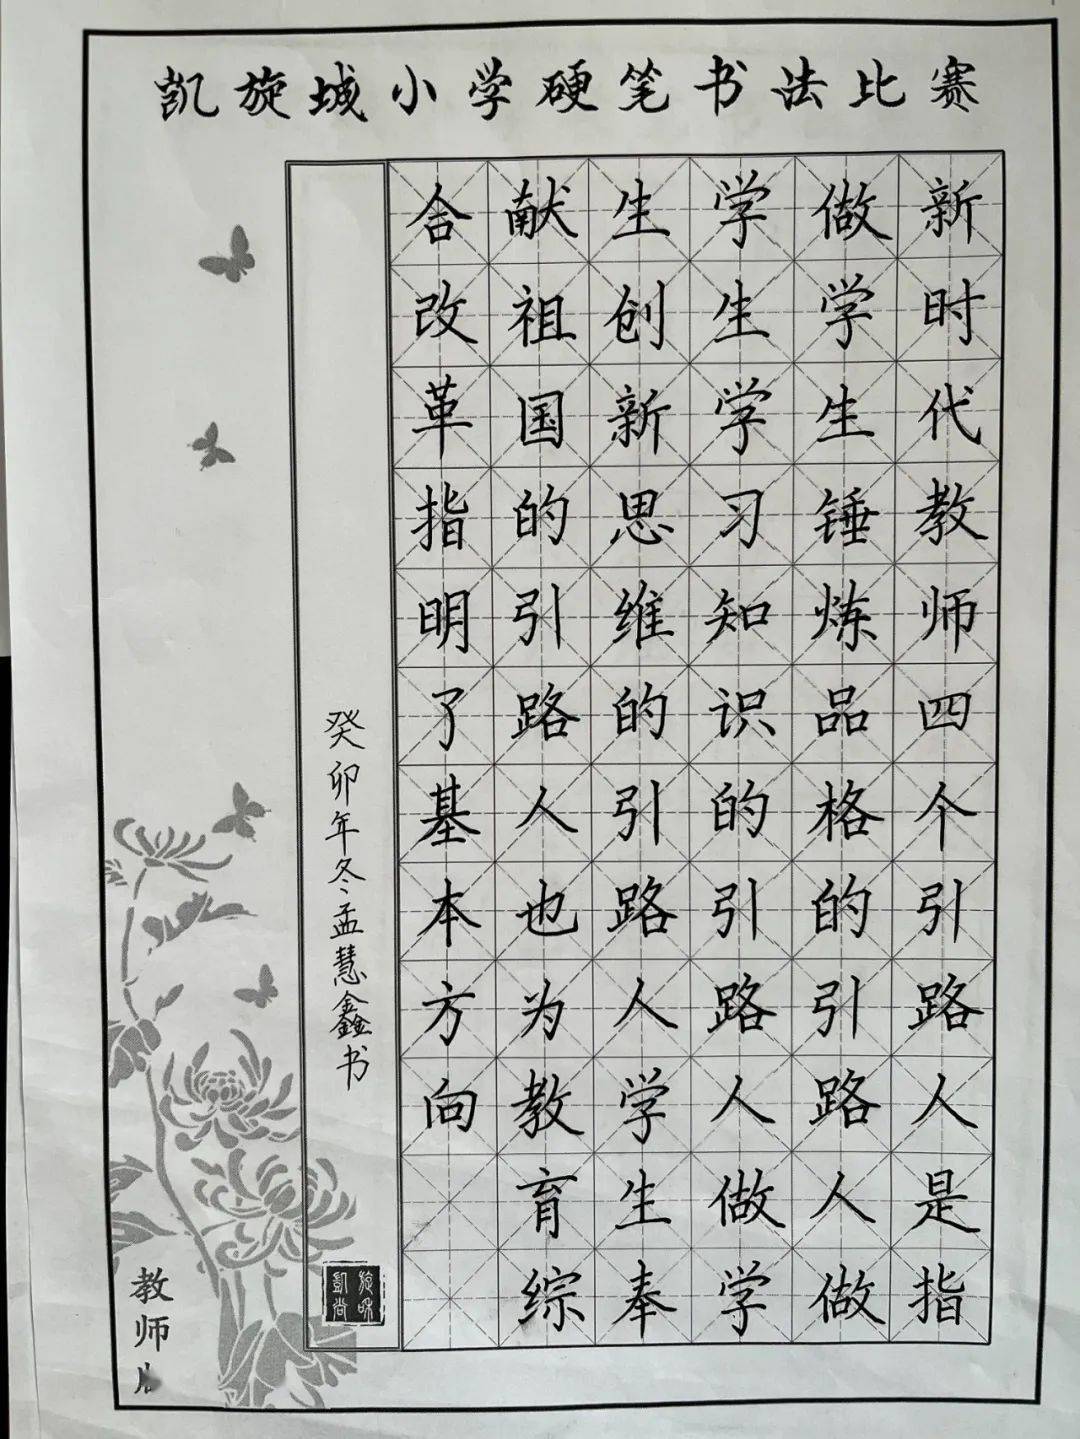 凯旋城小学硬笔书法比赛
新时代教师四个引路人是指
做学生锤炼品格的引路人做
学生学习知识的引路人做学
生创新思维的引路人学生奉
献祖国的引路人也为教育综
合改革指明了基本方向
癸卯年冬孟慧鑫书
教师